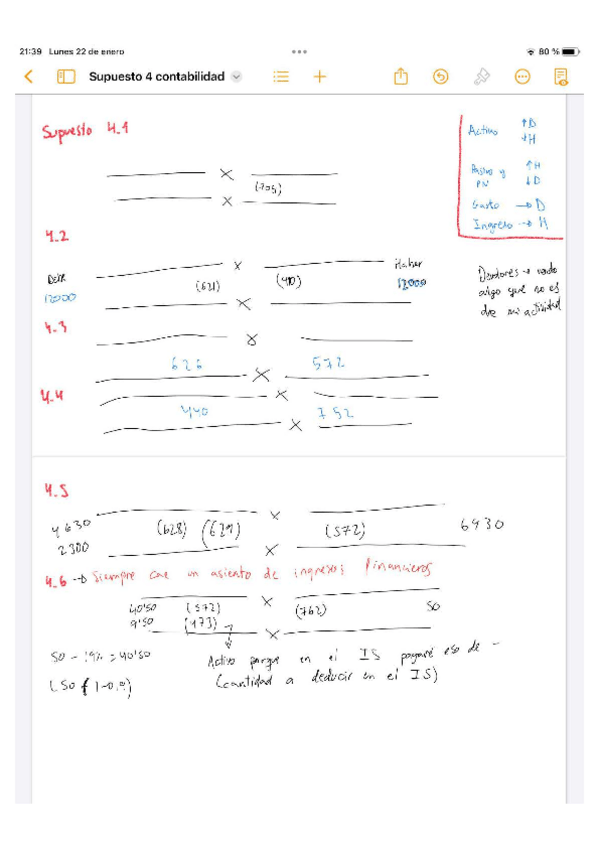 21:39 Lunes 22 de enero
80 %
Supuesto 4 contabilidad
Supuesto 4.1
Activo ↑D
↓H
Pasivo y PN ↑H
↓D
Gasto → D
Ingreso → H
X
(705)
X
4.2
X
Debe
Haber
12000 (621) (410) 12000
X
Deudores → vendo
algo que no es
de mi actividad
4.3
X
626 572
X
4.4
X
440 752
X
4.5
X
4630 (628) (629) (572) 6930
2300
X
4.6 → Siempre cae un asiento de ingresos financieros
X
40'50 (572) (762) 50
9'50 (473)
X
50 - 19% = 40'50
Activo porque en el IS pagaré eso de -
(cantidad a deducir en el IS)